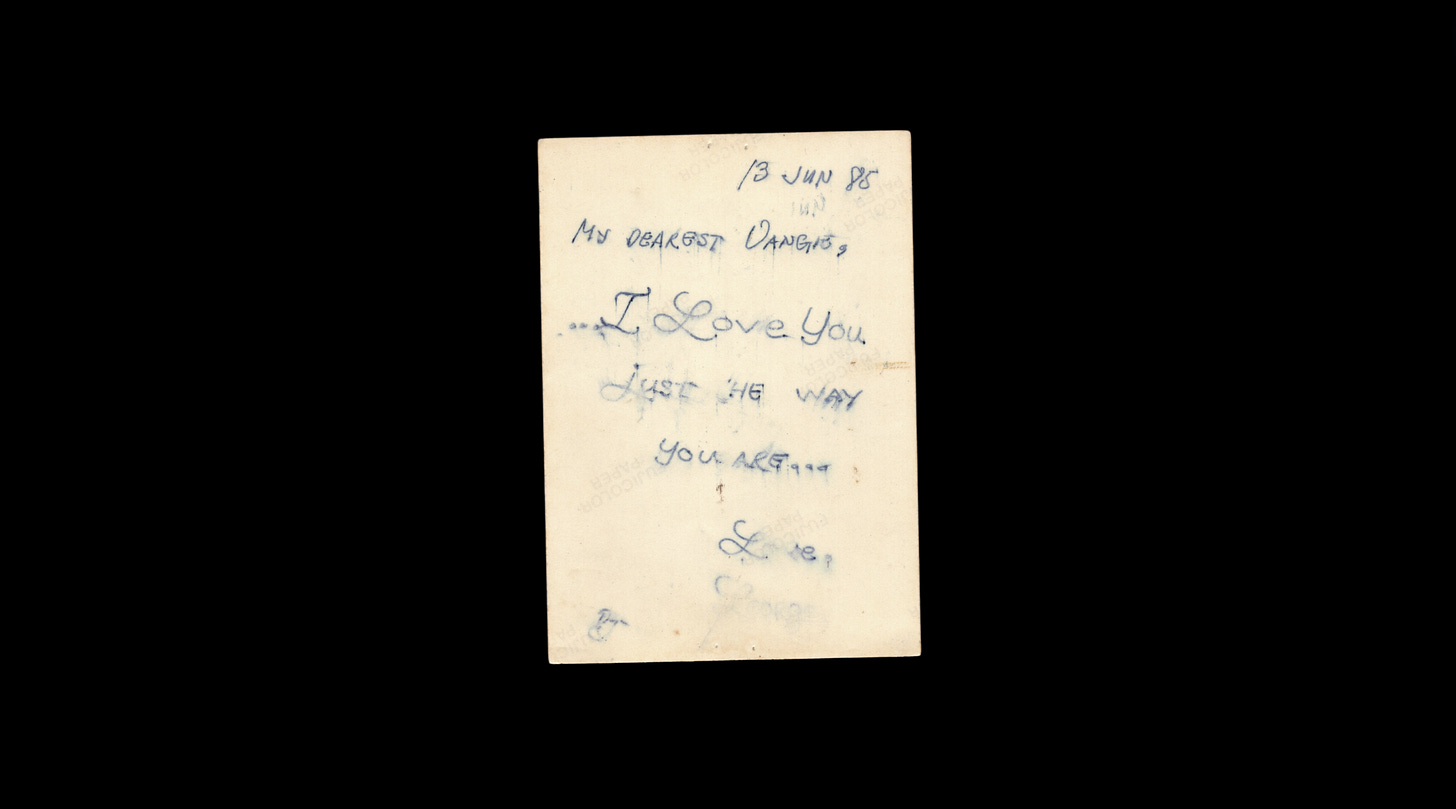 13 JUN 85
JUN
MY DEAREST VANGIE,
...I Love You
JUST THE WAY
YOU ARE...
Love,
FUJICOLOR
PAPER